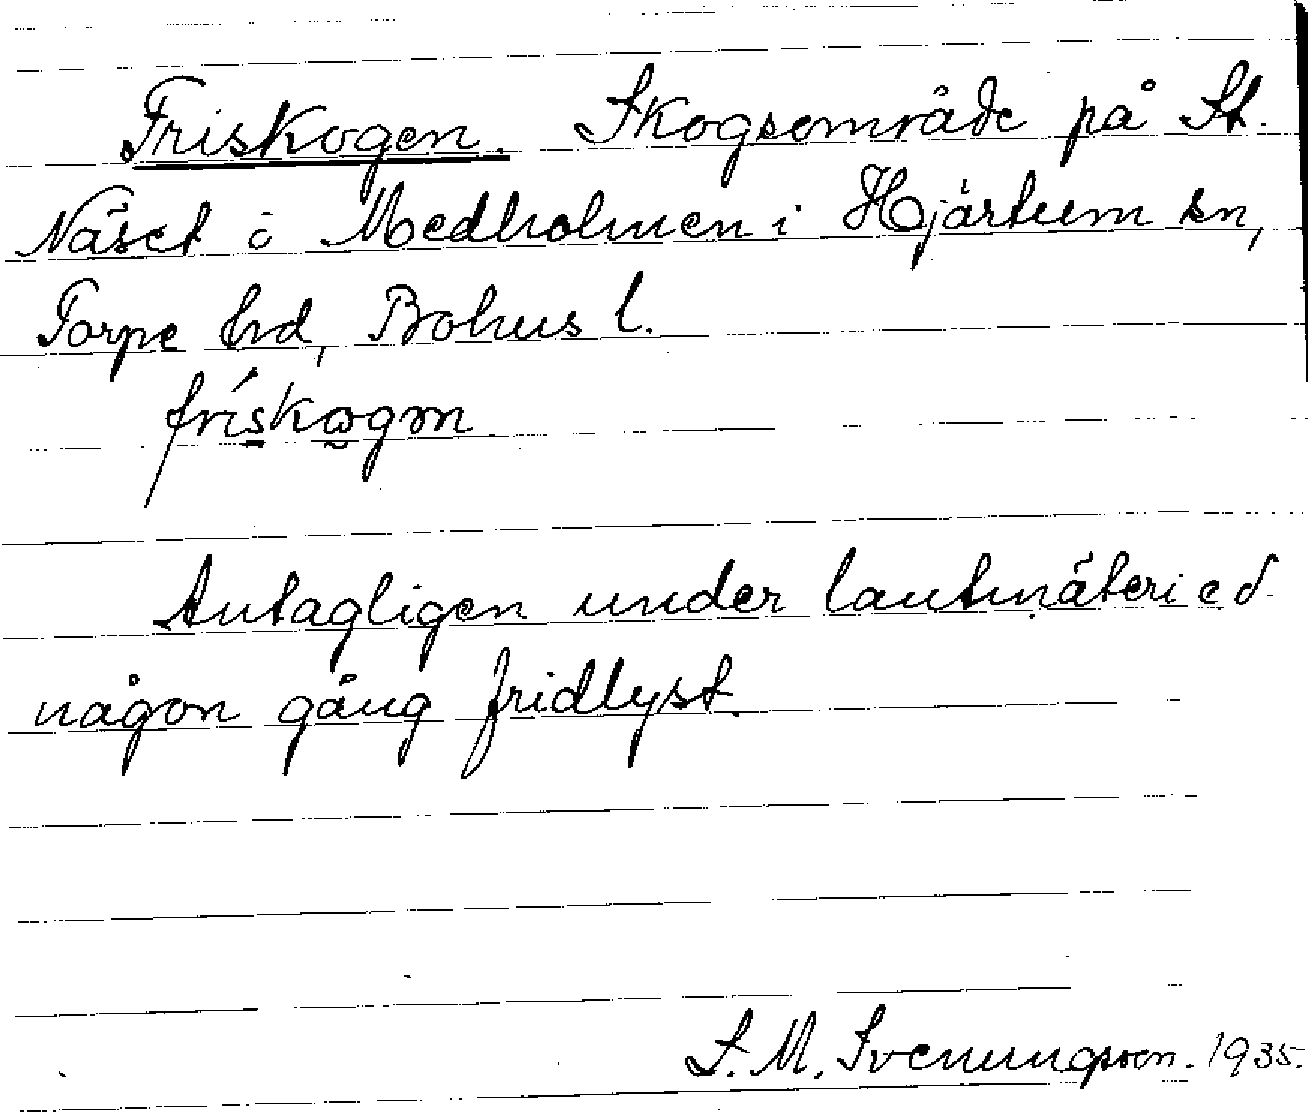 Friskogen. Skogsområde på St.
Näset o Medholmen i Hjärtum sn,
Torpe hrd, Bohus l.
frískogən
Antagligen under lantmäteried
någon gång fridlyst.
S. M. Svenungsson. 1935.